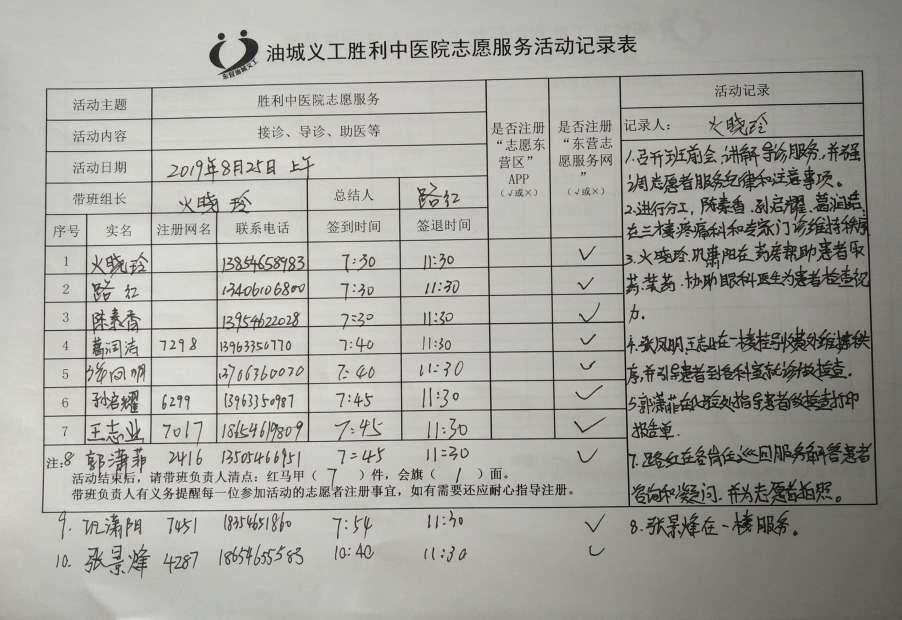 油城义工胜利中医院志愿服务活动记录表
东营油城义工
活动主题 胜利中医院志愿服务
活动内容 接诊、导诊、助医等
活动日期 2019年8月25日 上午
带班组长 火晓玲 总结人 路红
是否注册“志愿东营区”APP（√或×）
是否注册“东营志愿服务网”（√或×）
序号 实名 注册网名 联系电话 签到时间 签退时间
1 火晓玲 13854658983 7:30 11:30 √
2 路红 13406106800 7:30 11:30 √
3 陈素香 13954622028 7:30 11:30 √
4 葛润涛 7298 13963350770 7:40 11:30 √
5 13706360070 7:40 11:30 √
6 孙启耀 6299 13963350987 7:45 11:30 √
7 王志业 7017 18654619809 7:45 11:30 √
注:8 郭潇菲 2416 13505466951 7:45 11:30 √
活动结束后，请带班负责人清点：红马甲（ 7 ）件，会旗（ 1 ）面。
带班负责人有义务提醒每一位参加活动的志愿者注册事宜，如有需要还应耐心指导注册。
9. 巩潇阳 7451 18354651860 7:54 11:30 √
10. 张景烽 4287 18654655583 10:40 11:30 √
活动记录
记录人： 火晓玲
1.召开班前会,讲解导诊服务,并强
调志愿者服务纪律和注意事项。
2.进行分工,陈素香、孙启耀、葛润涛
在三楼疼痛科和专家门诊维持秩序
3.火晓玲.巩潇阳在药房帮助患者取
药.装药.协助眼科医生为患者检查视
力.
4.张凤明,王志业在一楼挂号收费处维持秩
序,并引导患者到各科室就诊做检查.
5.郭潇菲在处指导患者做检查打印
报告单.
7.路红在各岗位巡回服务解答患者
咨询和疑问.并为志愿者拍照。
8.张景烽在一楼服务。